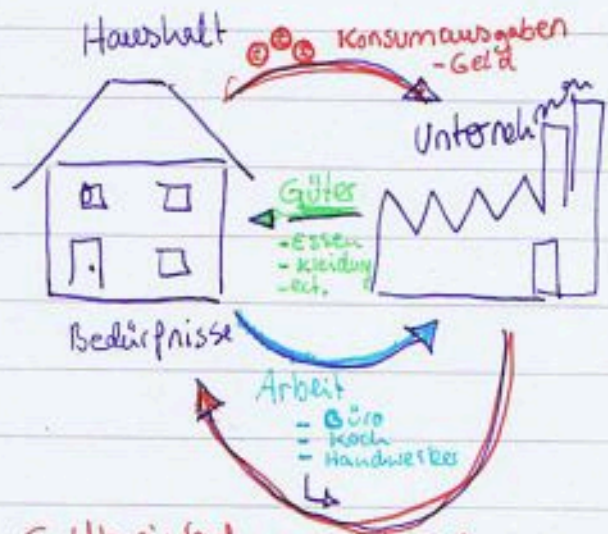 Haushalt
Konsumausgaben
-Geld
Unternehmen
Güter
-Essen
-Kleidung
-ect.
Bedürfnisse
Arbeit
- Büro
- Koch
- Handwerker